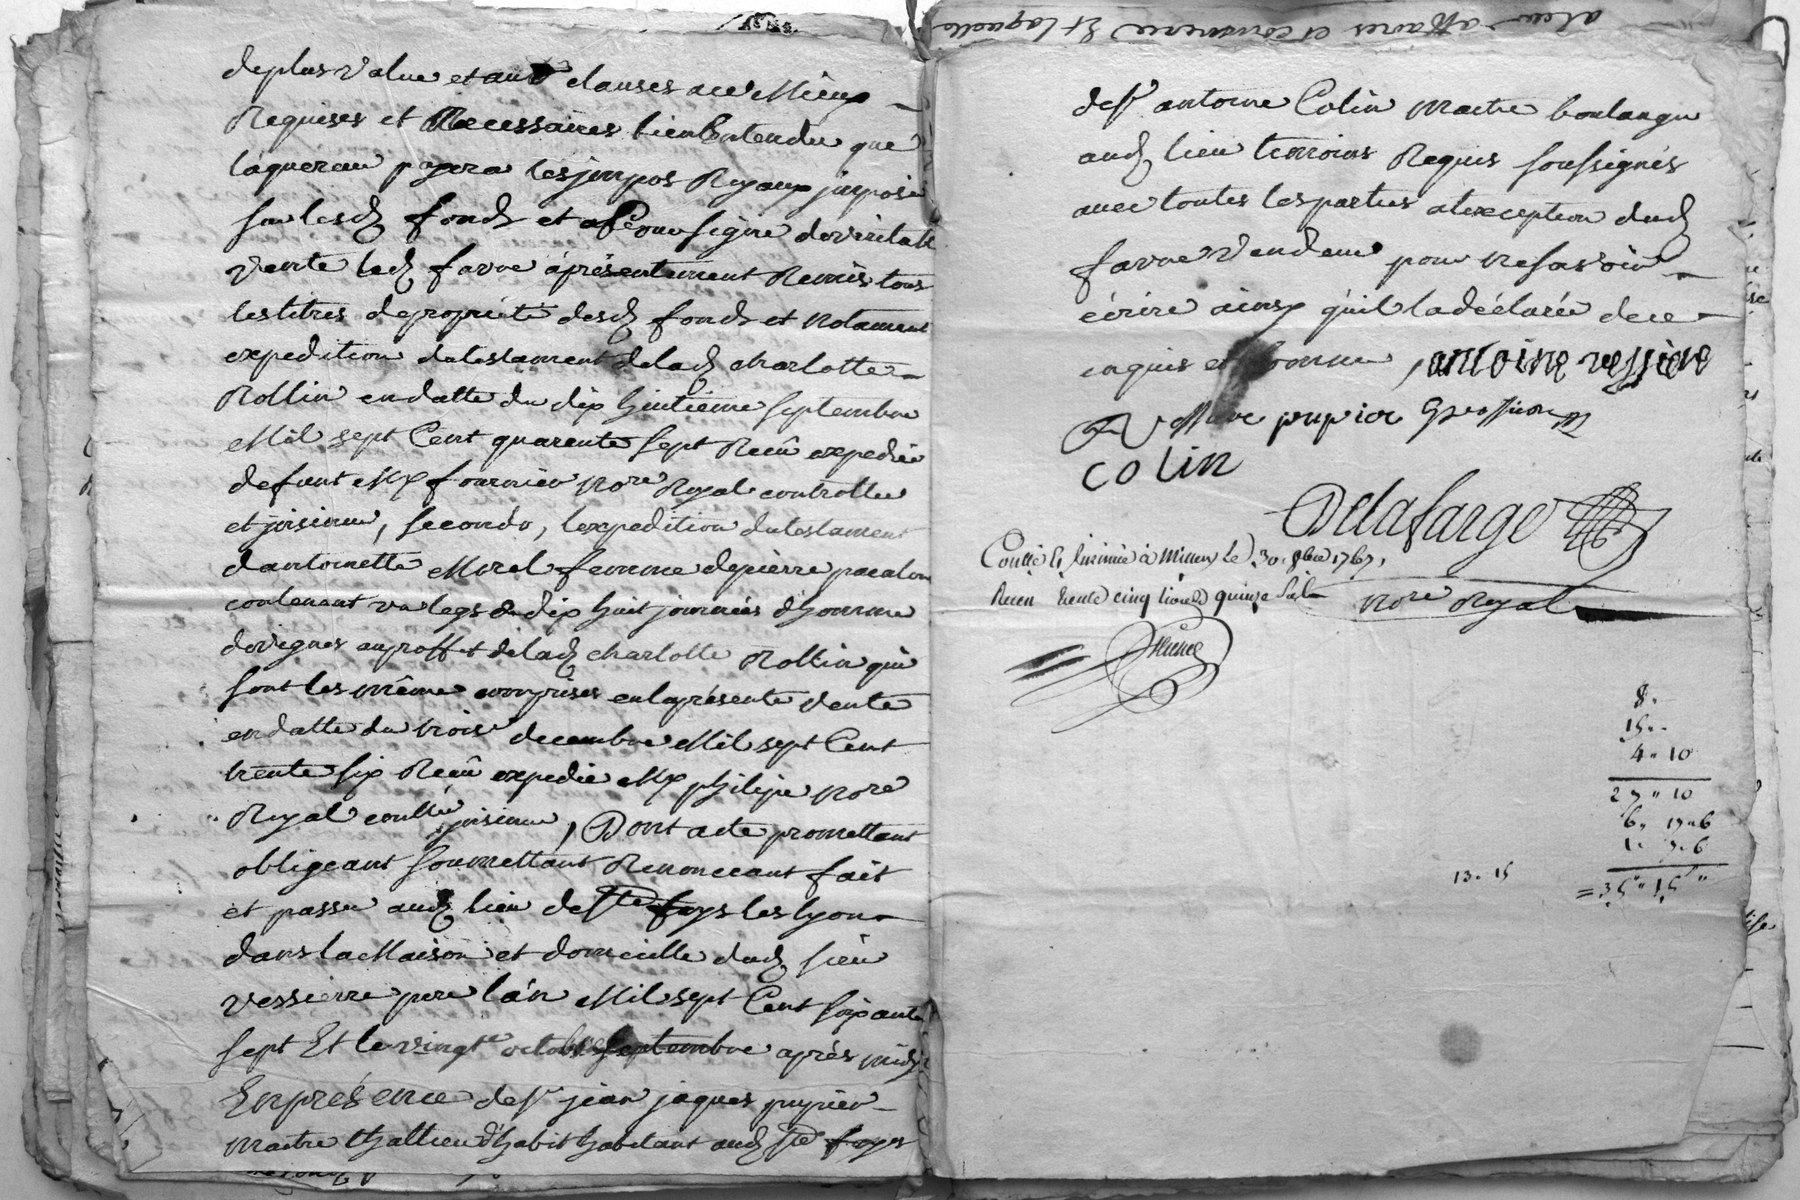 deplus value et autr clauses ace Mieux
Requises et Necessaires bien Entendu que
laquereur payera les jmpos Royaux jmposé
sur lesd fonds et
vente led favre a présentement Remis tous
les titres de propriété desd fonds et notament
expedition du testament delad charlotte
Rollin en datte du dix huitieme septembre
Mil sept Cent quarente sept Receû expedié
defunt Me fournier nore Royal controllee
et jnsinue, secondo, lexpedition du testament
dantoinette Morel femme de pierre pacalon
contenant un legs de dix huit journées dhomme
de vignes au proffit delad charlotte Rollin qui
sont les même comprises en la présente vente
en datte du trois decembre Mil sept Cent
trente six Receû expedié Me philipe nore
Royal conllé jnsinue, Dont acte promettant
obligeant soumettant Renoncant fait
et passé aud lieu de Ste foys les lyon
dans la Maison et domicille dud sieur
vessierre pere lán Mil sept Cent soixante
sept Et le vingte octobre septembre après midy
En présence de sr jean jaques pupier
maitre thallieur d'habit habitant aud Ste foys
alieu affaires et convenence Et laquelle
de sr antoine Colin maitre boulanger
aud lieu temoins Requis soussignés
avec toutes les parties a lexception dud
favre vendeur pour ne savoir
écrire ainsy quil la déclarée de ce
enquis et somme, antoine vessiere
Vessiere pupier
COlin
Delafarge
Conllé & jnsinué à Millery le 30. 8bre 1767,
Receu trente cinq livres quinze sols
nore Royal
8.
15..
4. 10
27 " 10
6. 17. 6
1. 7. 6
13. 15
= 35 " 15 "